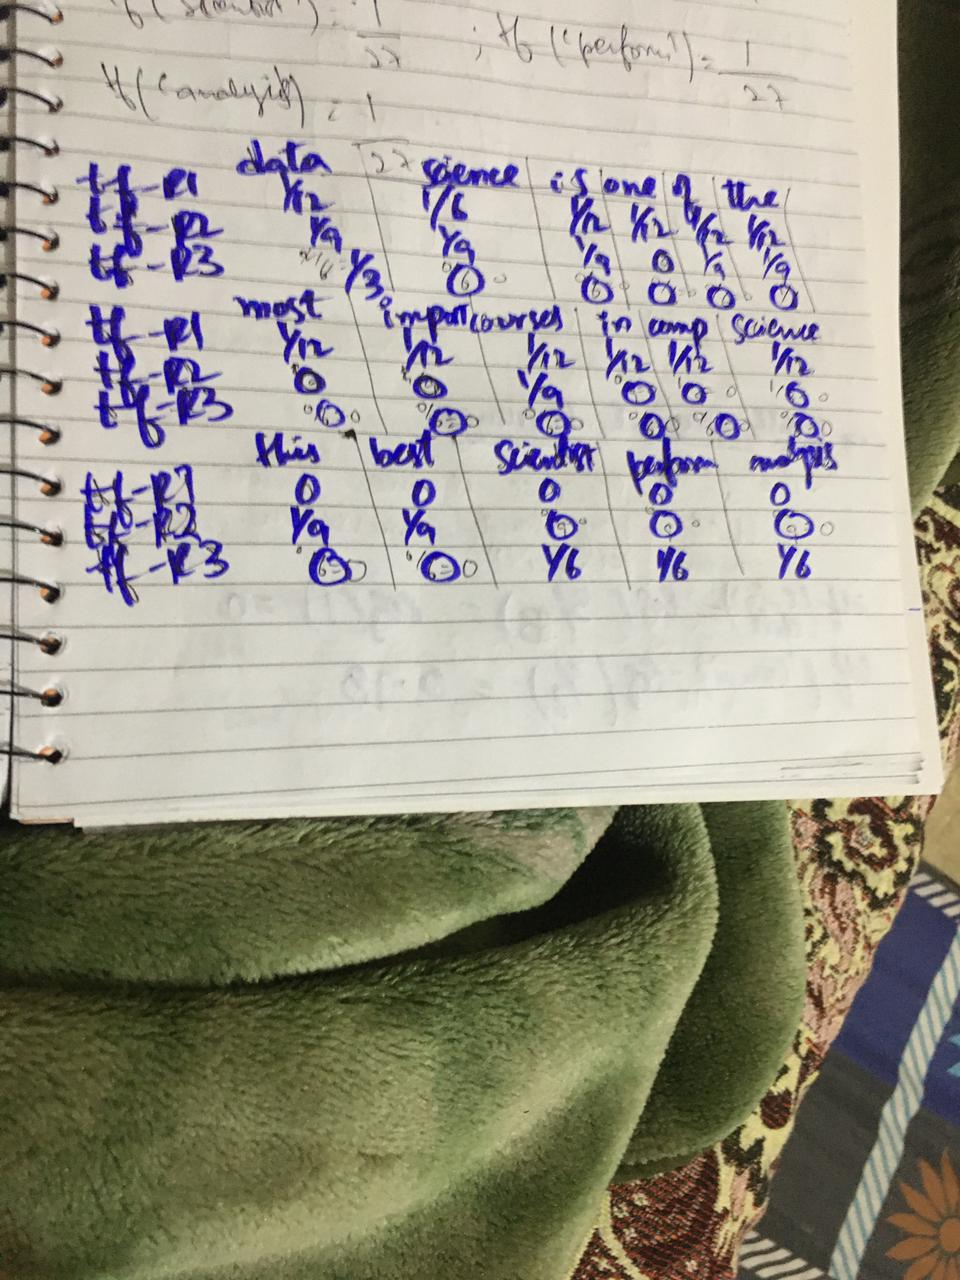 tf('scientist') = 1/27 ; tf('perform') = 1/27
tf('analysis') = 1/27
data science is one of the
tf-R1 1/12 1/6 1/12 1/12 1/12 1/12
tf-R2 1/9 1/9 1/9 0 1/9 1/9
tf-R3 1/3 0 0 0 0 0
most import courses in comp science
tf-R1 1/12 1/12 1/12 1/12 1/12 1/12
tf-R2 0 0 1/9 0 0 0
tf-R3 0 0 0 0 0 0
this best scientist perform analysis
tf-R1 0 0 0 0 0
tf-R2 1/9 1/9 0 0 0
tf-R3 0 0 1/6 1/6 1/6